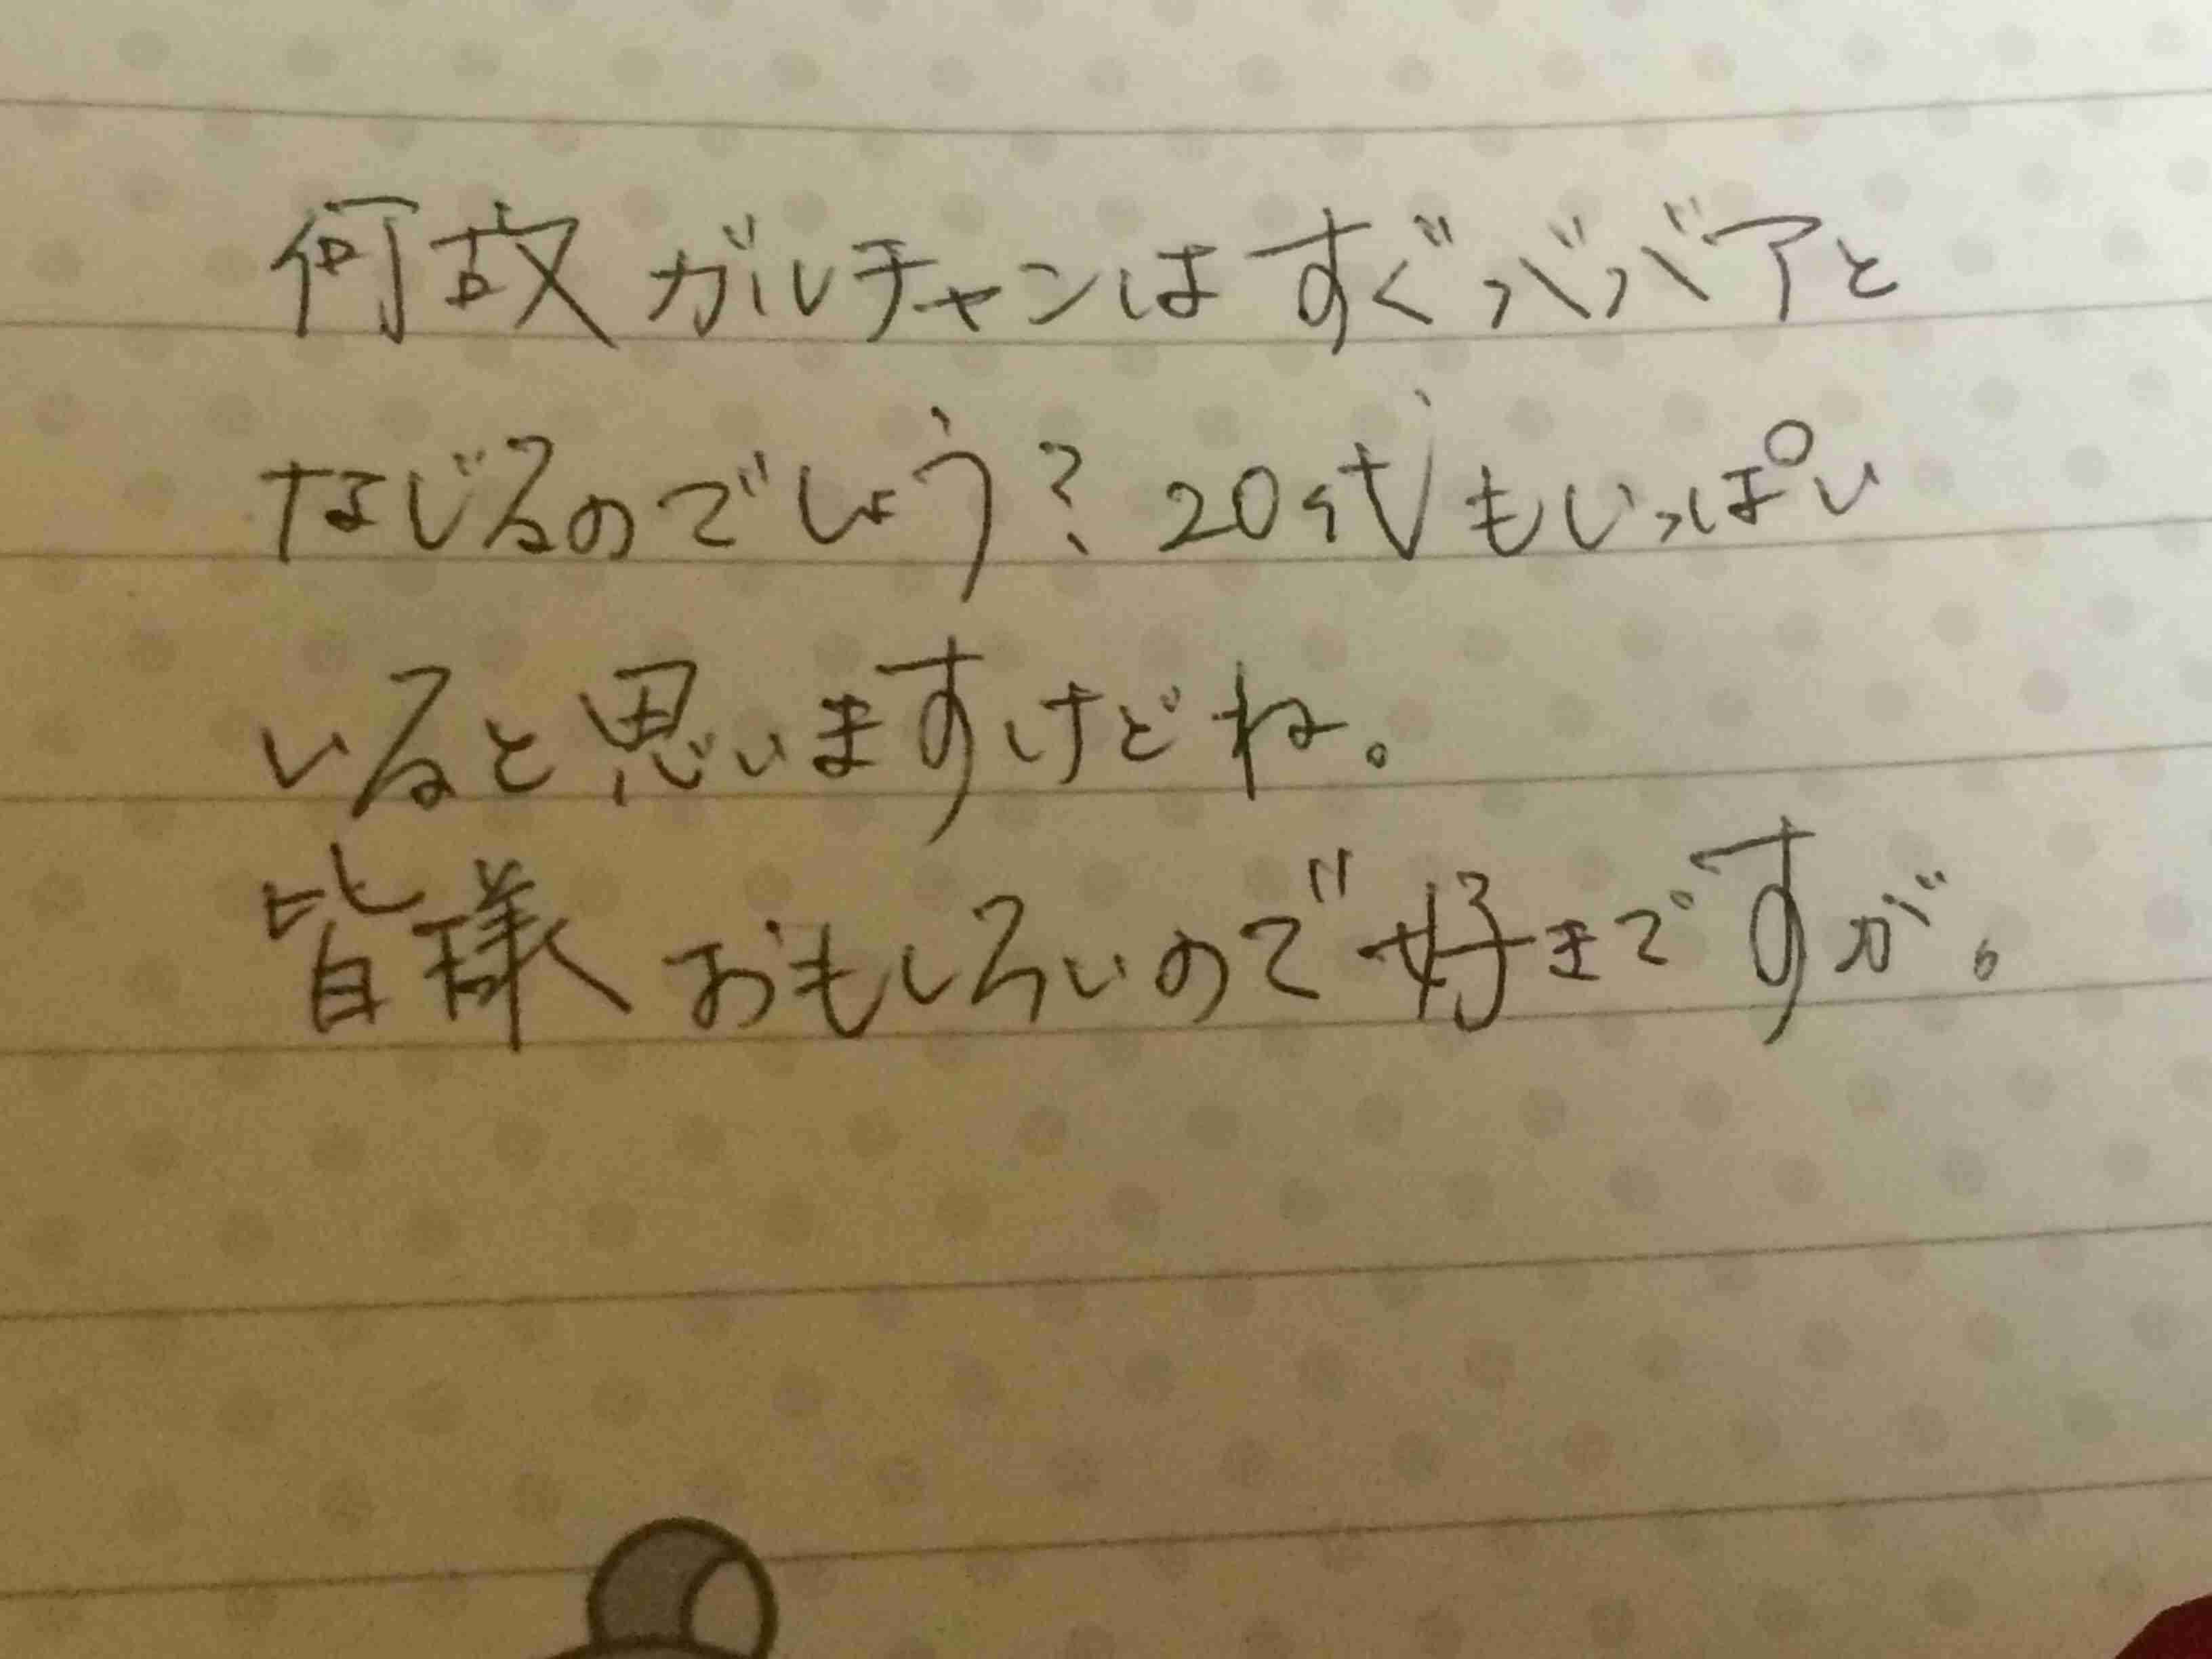 何故ガルチャンはすぐババアと
なじるのでしょう？20代もいっぱい
いると思いますけどね。
皆様おもしろいので好きですが。